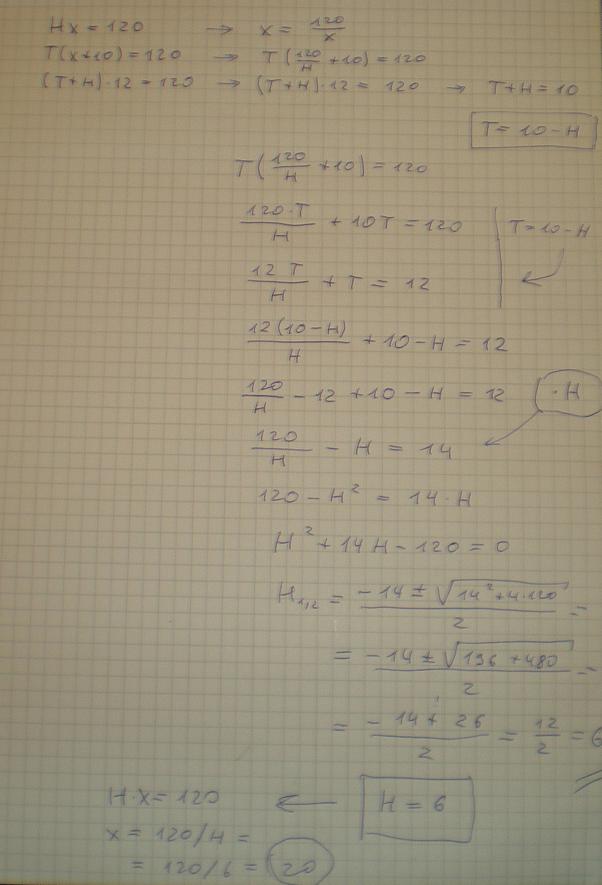 Hx = 120 → x = 120/x
T(x+10) = 120 → T(120/H + 10) = 120
(T+H)·12 = 120 → (T+H)·12 = 120 → T+H = 10
T = 10 - H
T(120/H + 10) = 120
120·T/H + 10T = 120 | T = 10 - H
12T/H + T = 12
12(10-H)/H + 10 - H = 12
120/H - 12 + 10 - H = 12 ·H
120/H - H = 14
120 - H² = 14·H
H² + 14H - 120 = 0
H₁,₂ = (-14 ± √(14² + 4·120))/2 =
= (-14 ± √(196 + 480))/2 =
= (-14 + 26)/2 = 12/2 = 6
H·x = 120 ← H = 6
x = 120/H =
= 120/6 = 20